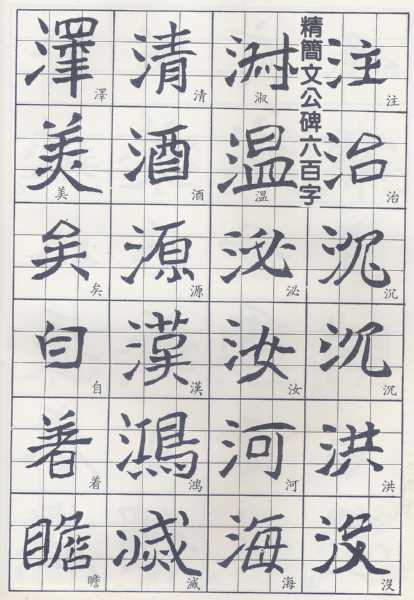 精簡文公碑六百字
注治沉沉洪沒
注治沉沉洪沒
淑温泌汝河海
淑温泌汝河海
清酒源漢鴻滅
清酒源漢鴻滅
澤美矣自着瞻
澤美矣自着瞻